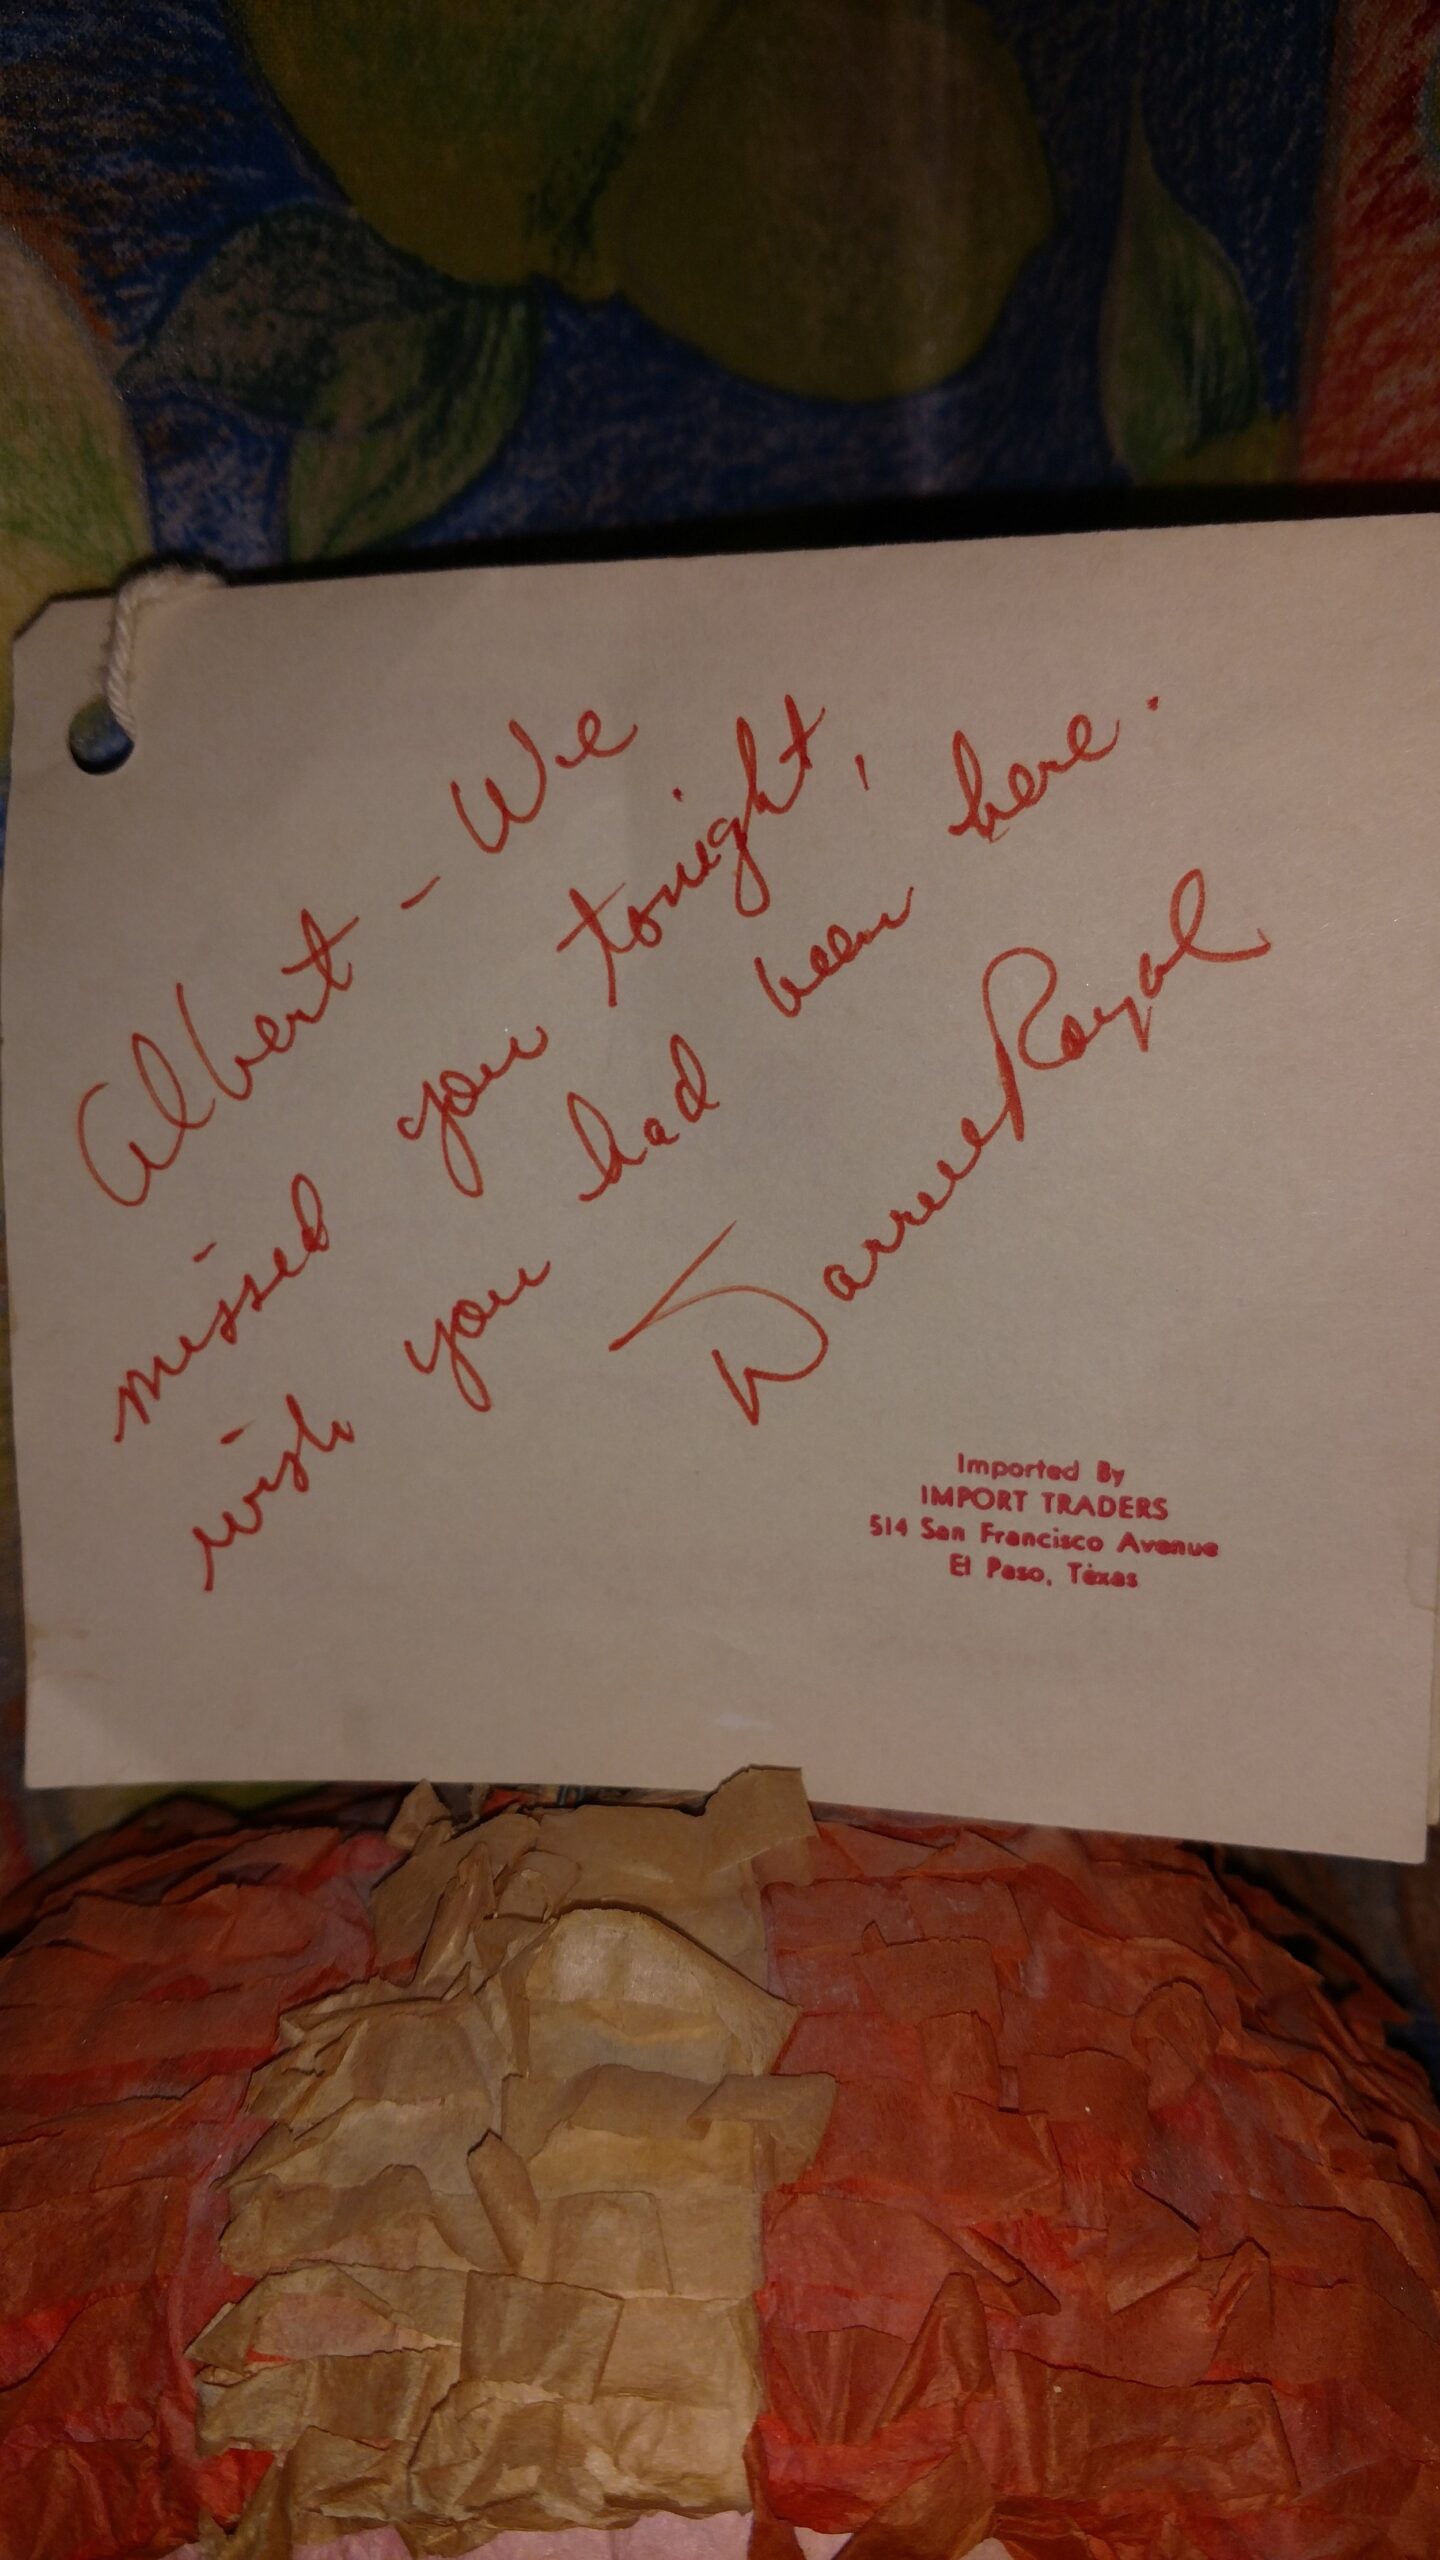 Albert - We
missed you tonight,
wish you had been here.
Darrell Royal
Imported By
IMPORT TRADERS
514 San Francisco Avenue
El Paso, Texas